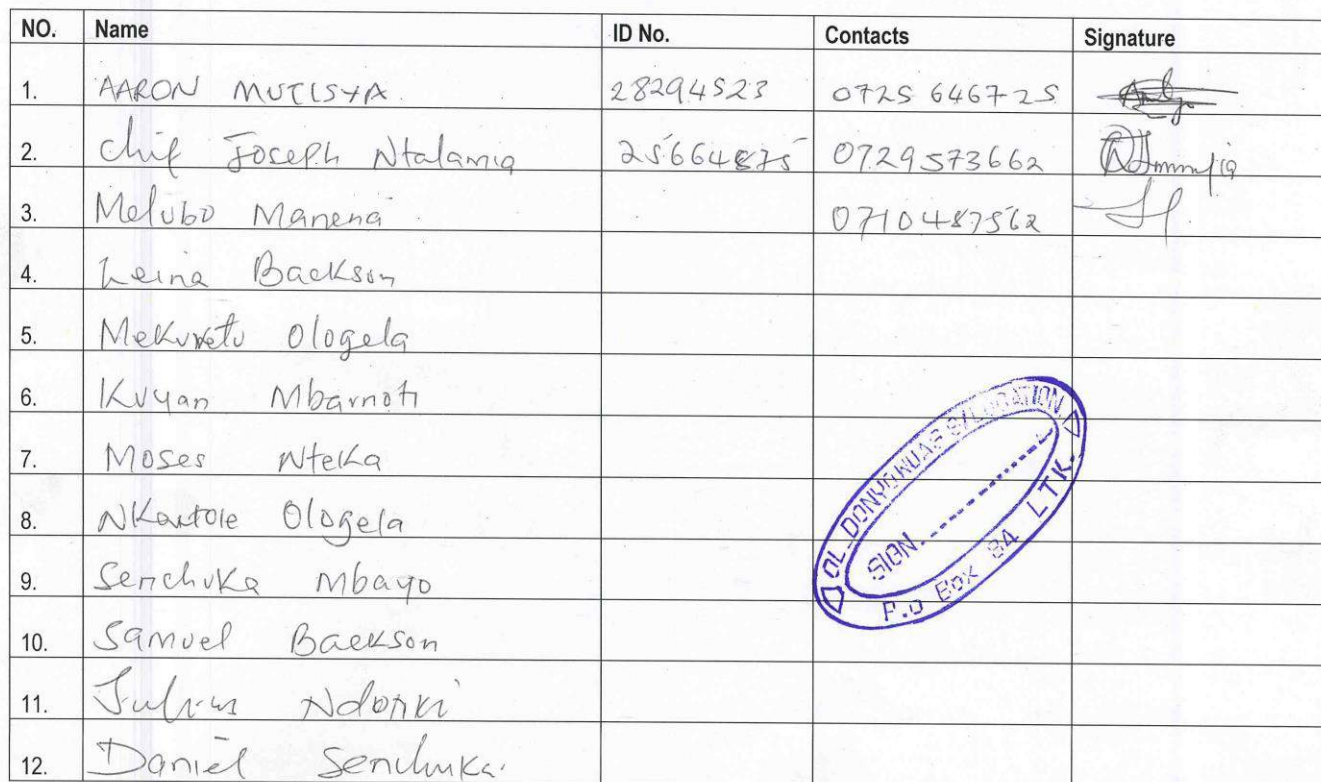 NO. Name ID No. Contacts Signature
1. AARON MUTISYA 28294523 0725 646725
2. Chief Joseph Ntalamia 25664875 0729573662
3. Melubo Manena 0710487562
4. Leina Backson
5. Mekuretu Ologela
6. Kuyan Mbarnoti
7. Moses Nteka
8. NKantole Ologela
9. Senchuka Mbayo
10. Samuel Backson
11. Julius Ndonki
12. Daniel Senchuka
OL_DONYO NUAS S/LOCATION
SIGN.
P.O Box 84 LTK.